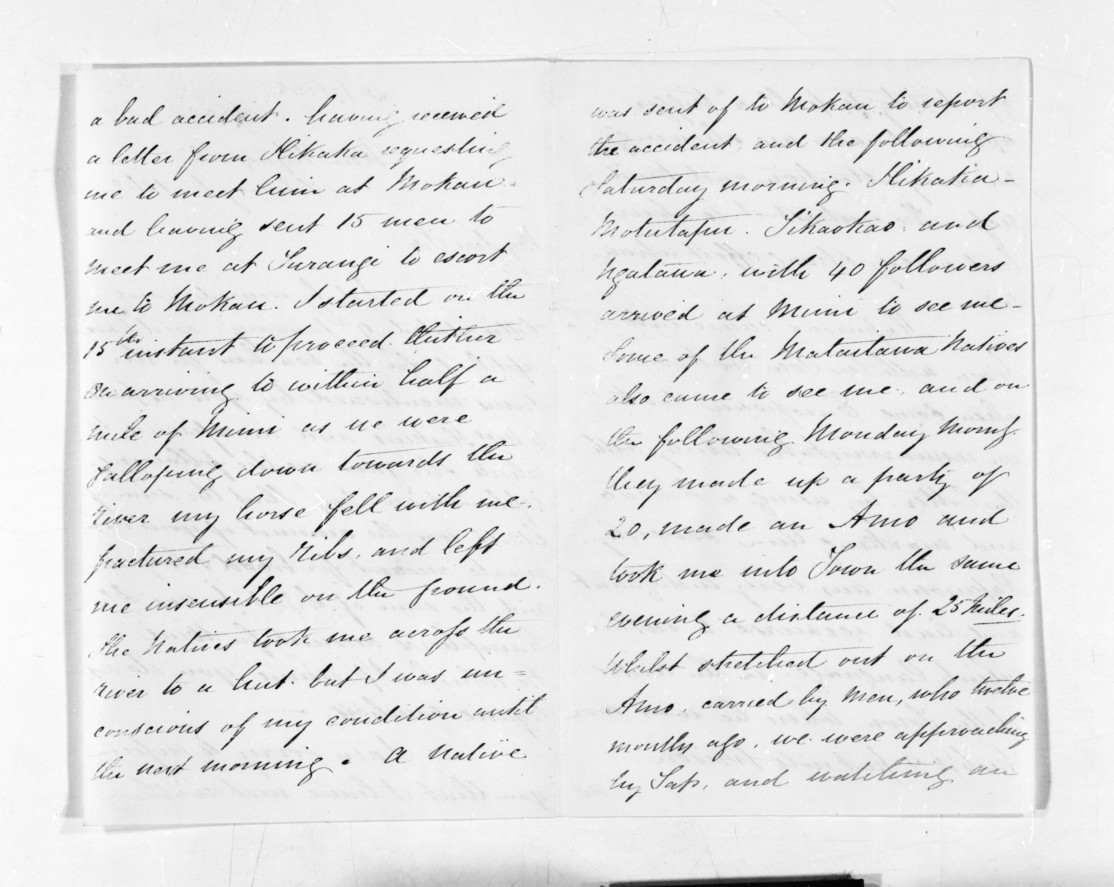 a bad accident. having received
a letter from Hikaka requesting
me to meet him at Mokau.
and having sent 15 men to
meet me at Turangi to escort
me to Mokau. I started on the
15th instant to proceed thither
on arriving to within half a
mile of Mimi as we were
galloping down towards the
river my horse fell with me.
fractured my ribs, and left
me insensible on the ground.
the Natives took me across the
river to a hut. but I was un=
conscious of my condition until
the next morning. A native
was sent of to Mokau to report
the accident and the following
Saturday morning. Hikaka-
Motutapu. Tikaokao. and
Ngatawa, with 40 followers
arrived at Mimi to see me-
Some of the Mataitawa Natives
also came to see me. and on
the following Monday Morng.
they made up a party of
20, made an Amo and
took me into Town the same
evening a distance of 25 Miles.
Whilst stretched out on the
Amo. carried by men, who twelve
months ago, we were approaching
by Sap, and watching an